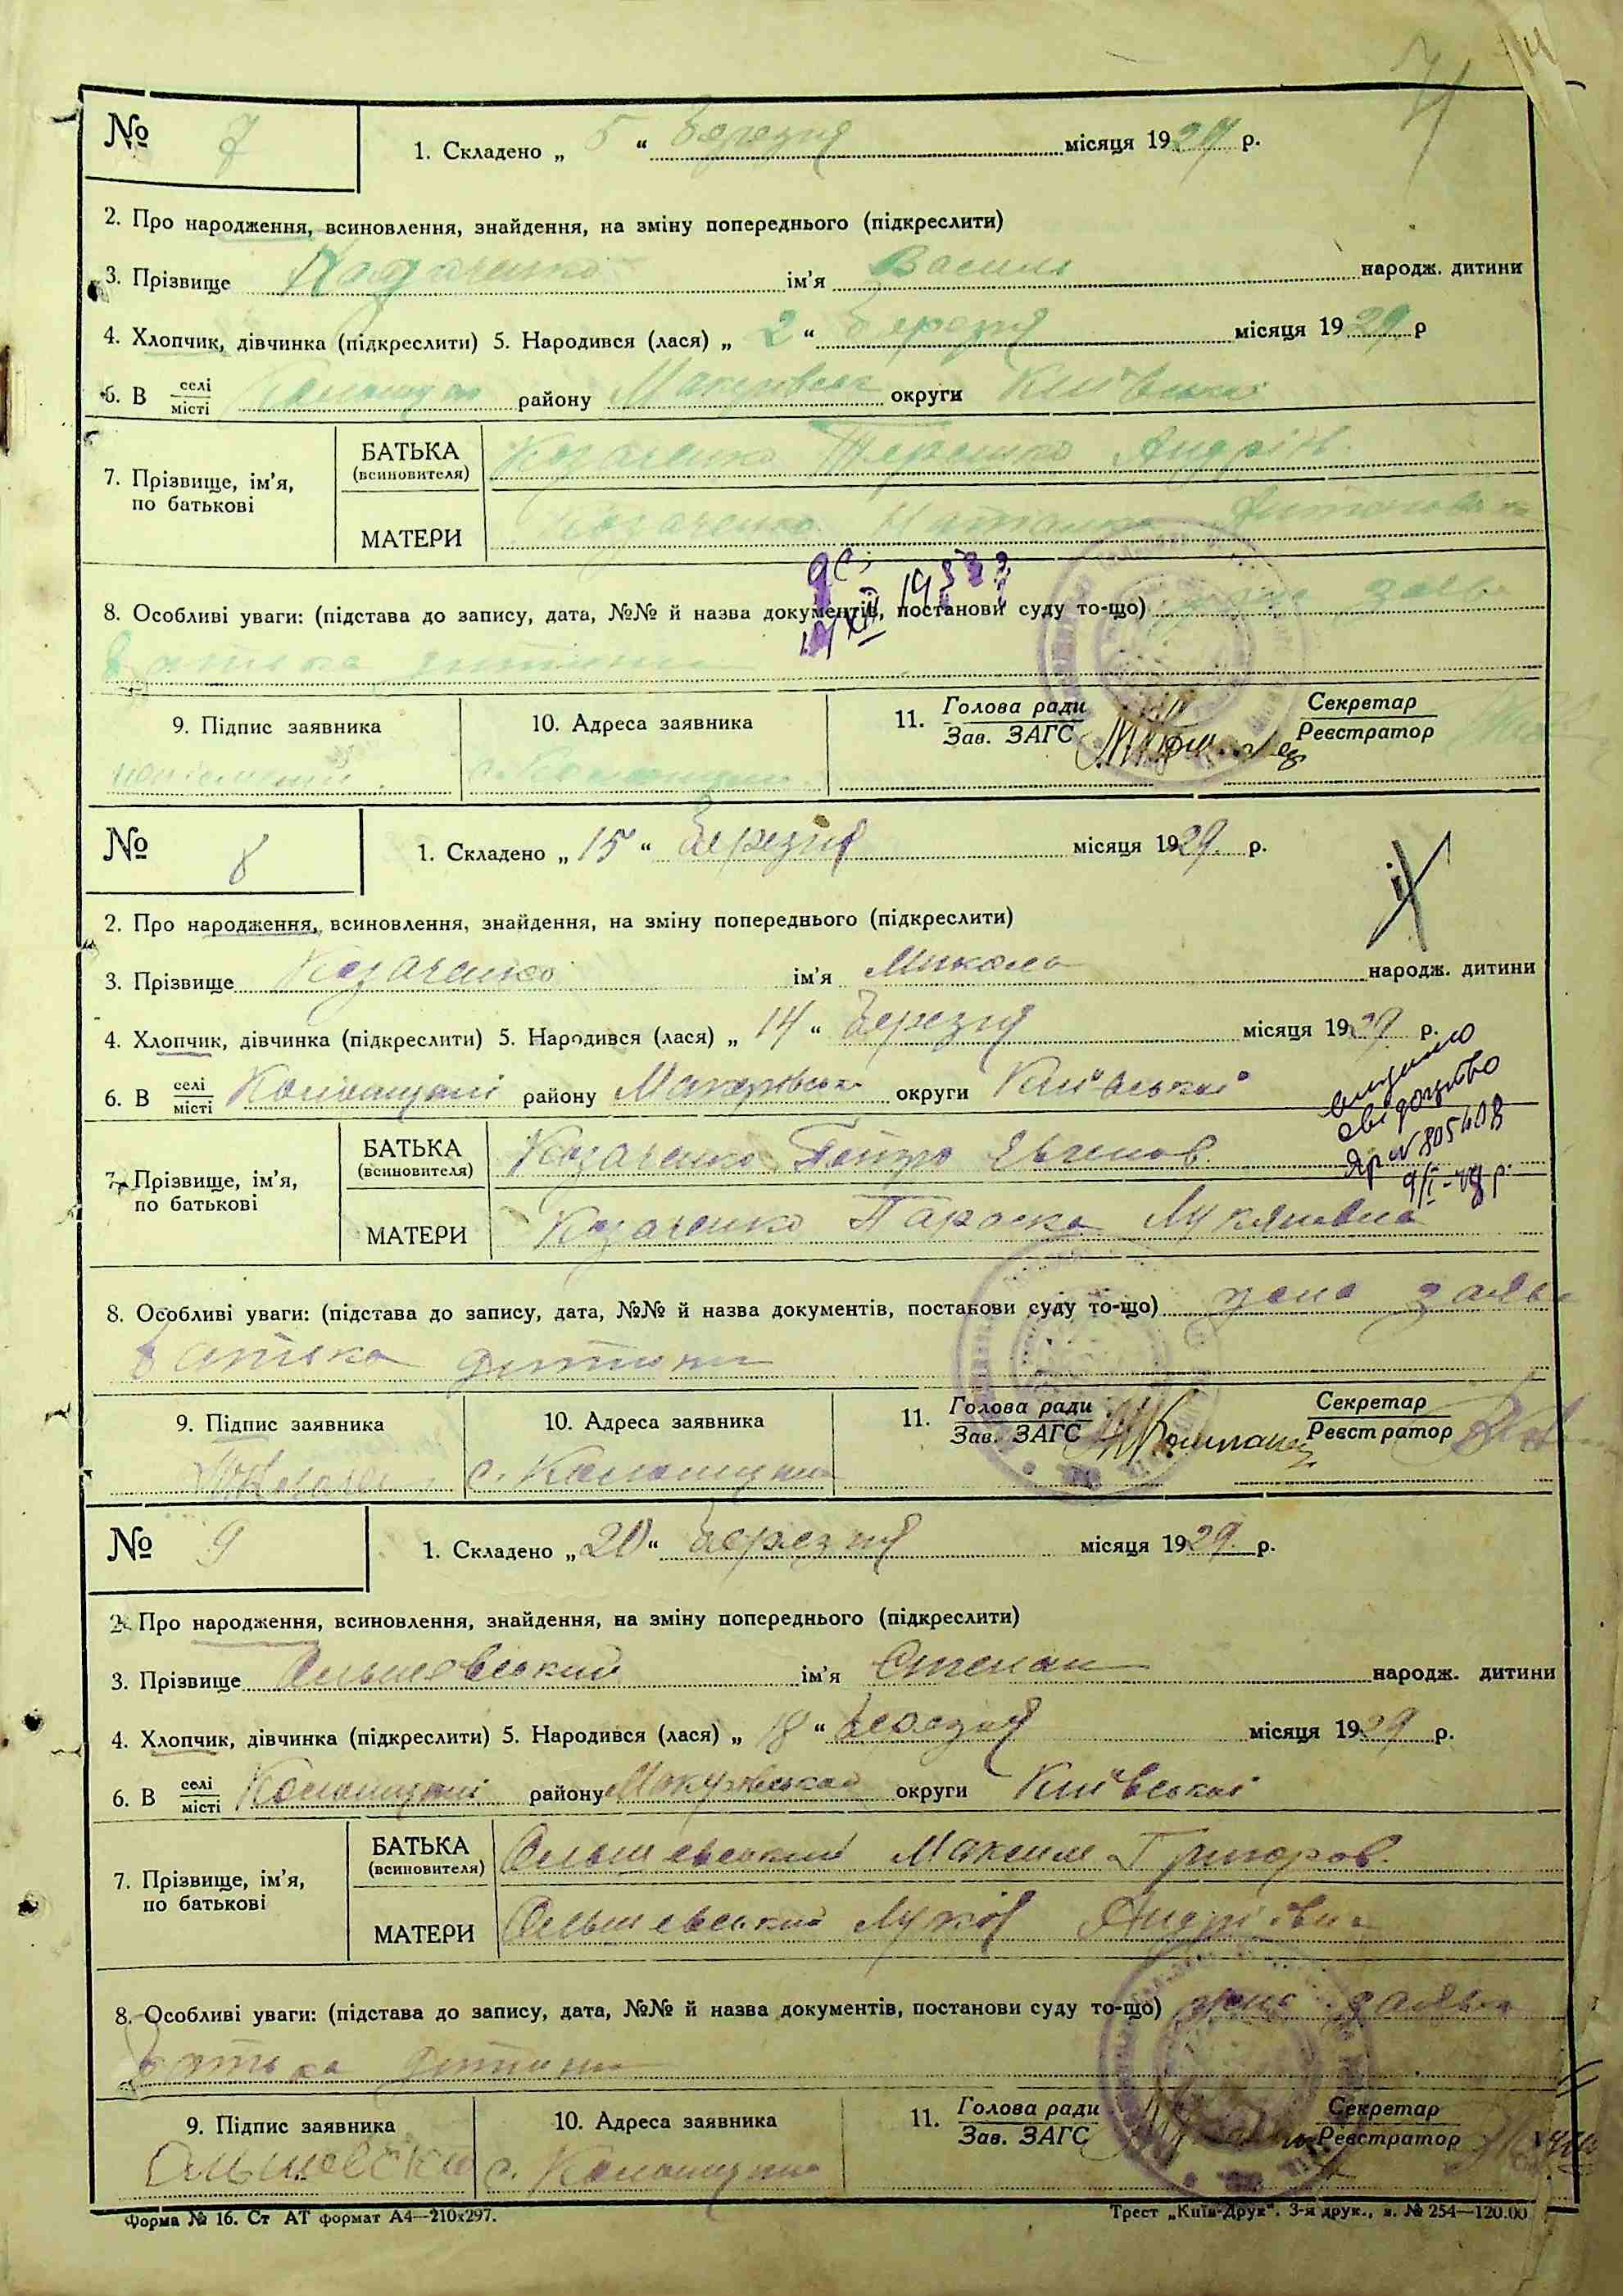 № 7
1. Складено „ 5 “ березня місяця 1929 р.
2. Про народження, всиновлення, знайдення, на зміну попереднього (підкреслити)
3. Прізвище Козаченко ім’я Василь народж. дитини
4. Хлопчик, дівчинка (підкреслити) 5. Народився (лася) „ 2 “ березня місяця 1929 р
6. В селі місті району Макарівськ округи Київської
7. Прізвище, ім’я, по батькові
БАТЬКА (всиновителя) Козаченко Терешко Андрій.
МАТЕРИ Козаченко Наталка Антонов
8. Особливі уваги: (підстава до запису, дата, №№ й назва документів, постанови суду то-що) усна заява
батька дитини
9. Підпис заявника
10. Адреса заявника
11. Голова ради Зав. ЗАГС
Секретар Реєстратор
№ 8
1. Складено „ 15 “ березня місяця 1929. р.
2. Про народження, всиновлення, знайдення, на зміну попереднього (підкреслити)
3. Прізвище Козаченко ім’я Микола народж. дитини
4. Хлопчик, дівчинка (підкреслити) 5. Народився (лася) „ 14 “ березня місяця 1929 р.
6. В селі місті Колонщині району Макарівськ округи Київської
видано
свідоцтво
7. Прізвище, ім’я, по батькові
БАТЬКА (всиновителя) Козаченко Петро Євгенов.
№ 805408
МАТЕРИ Козаченко Параска Лукянівна
8. Особливі уваги: (підстава до запису, дата, №№ й назва документів, постанови суду то-що) усна заява
батька дитини
9. Підпис заявника
10. Адреса заявника
11. Голова ради Зав. ЗАГС
Секретар Реєстратор
с. Колонщина
№ 9
1. Складено „ 20 “ березня місяця 1929. р.
2. Про народження, всиновлення, знайдення, на зміну попереднього (підкреслити)
3. Прізвище Ольшевський ім’я Степан народж. дитини
4. Хлопчик, дівчинка (підкреслити) 5. Народився (лася) „ 18 “ березня місяця 1929 р.
6. В селі місті Колонщині району Макарівськой округи Київської
7. Прізвище, ім’я, по батькові
БАТЬКА (всиновителя) Ольшевський Максим Григоров.
МАТЕРИ Ольшевський Андріївна
8. Особливі уваги: (підстава до запису, дата, №№ й назва документів, постанови суду то-що) усна заява
батька дитини
9. Підпис заявника
10. Адреса заявника
11. Голова ради Зав. ЗАГС
Секретар Реєстратор
с. Колонщина
Форма № 16. Ст АТ формат А4—210х297.
Трест „Київ-Друк“. 3-я друк., з. № 254—120.00